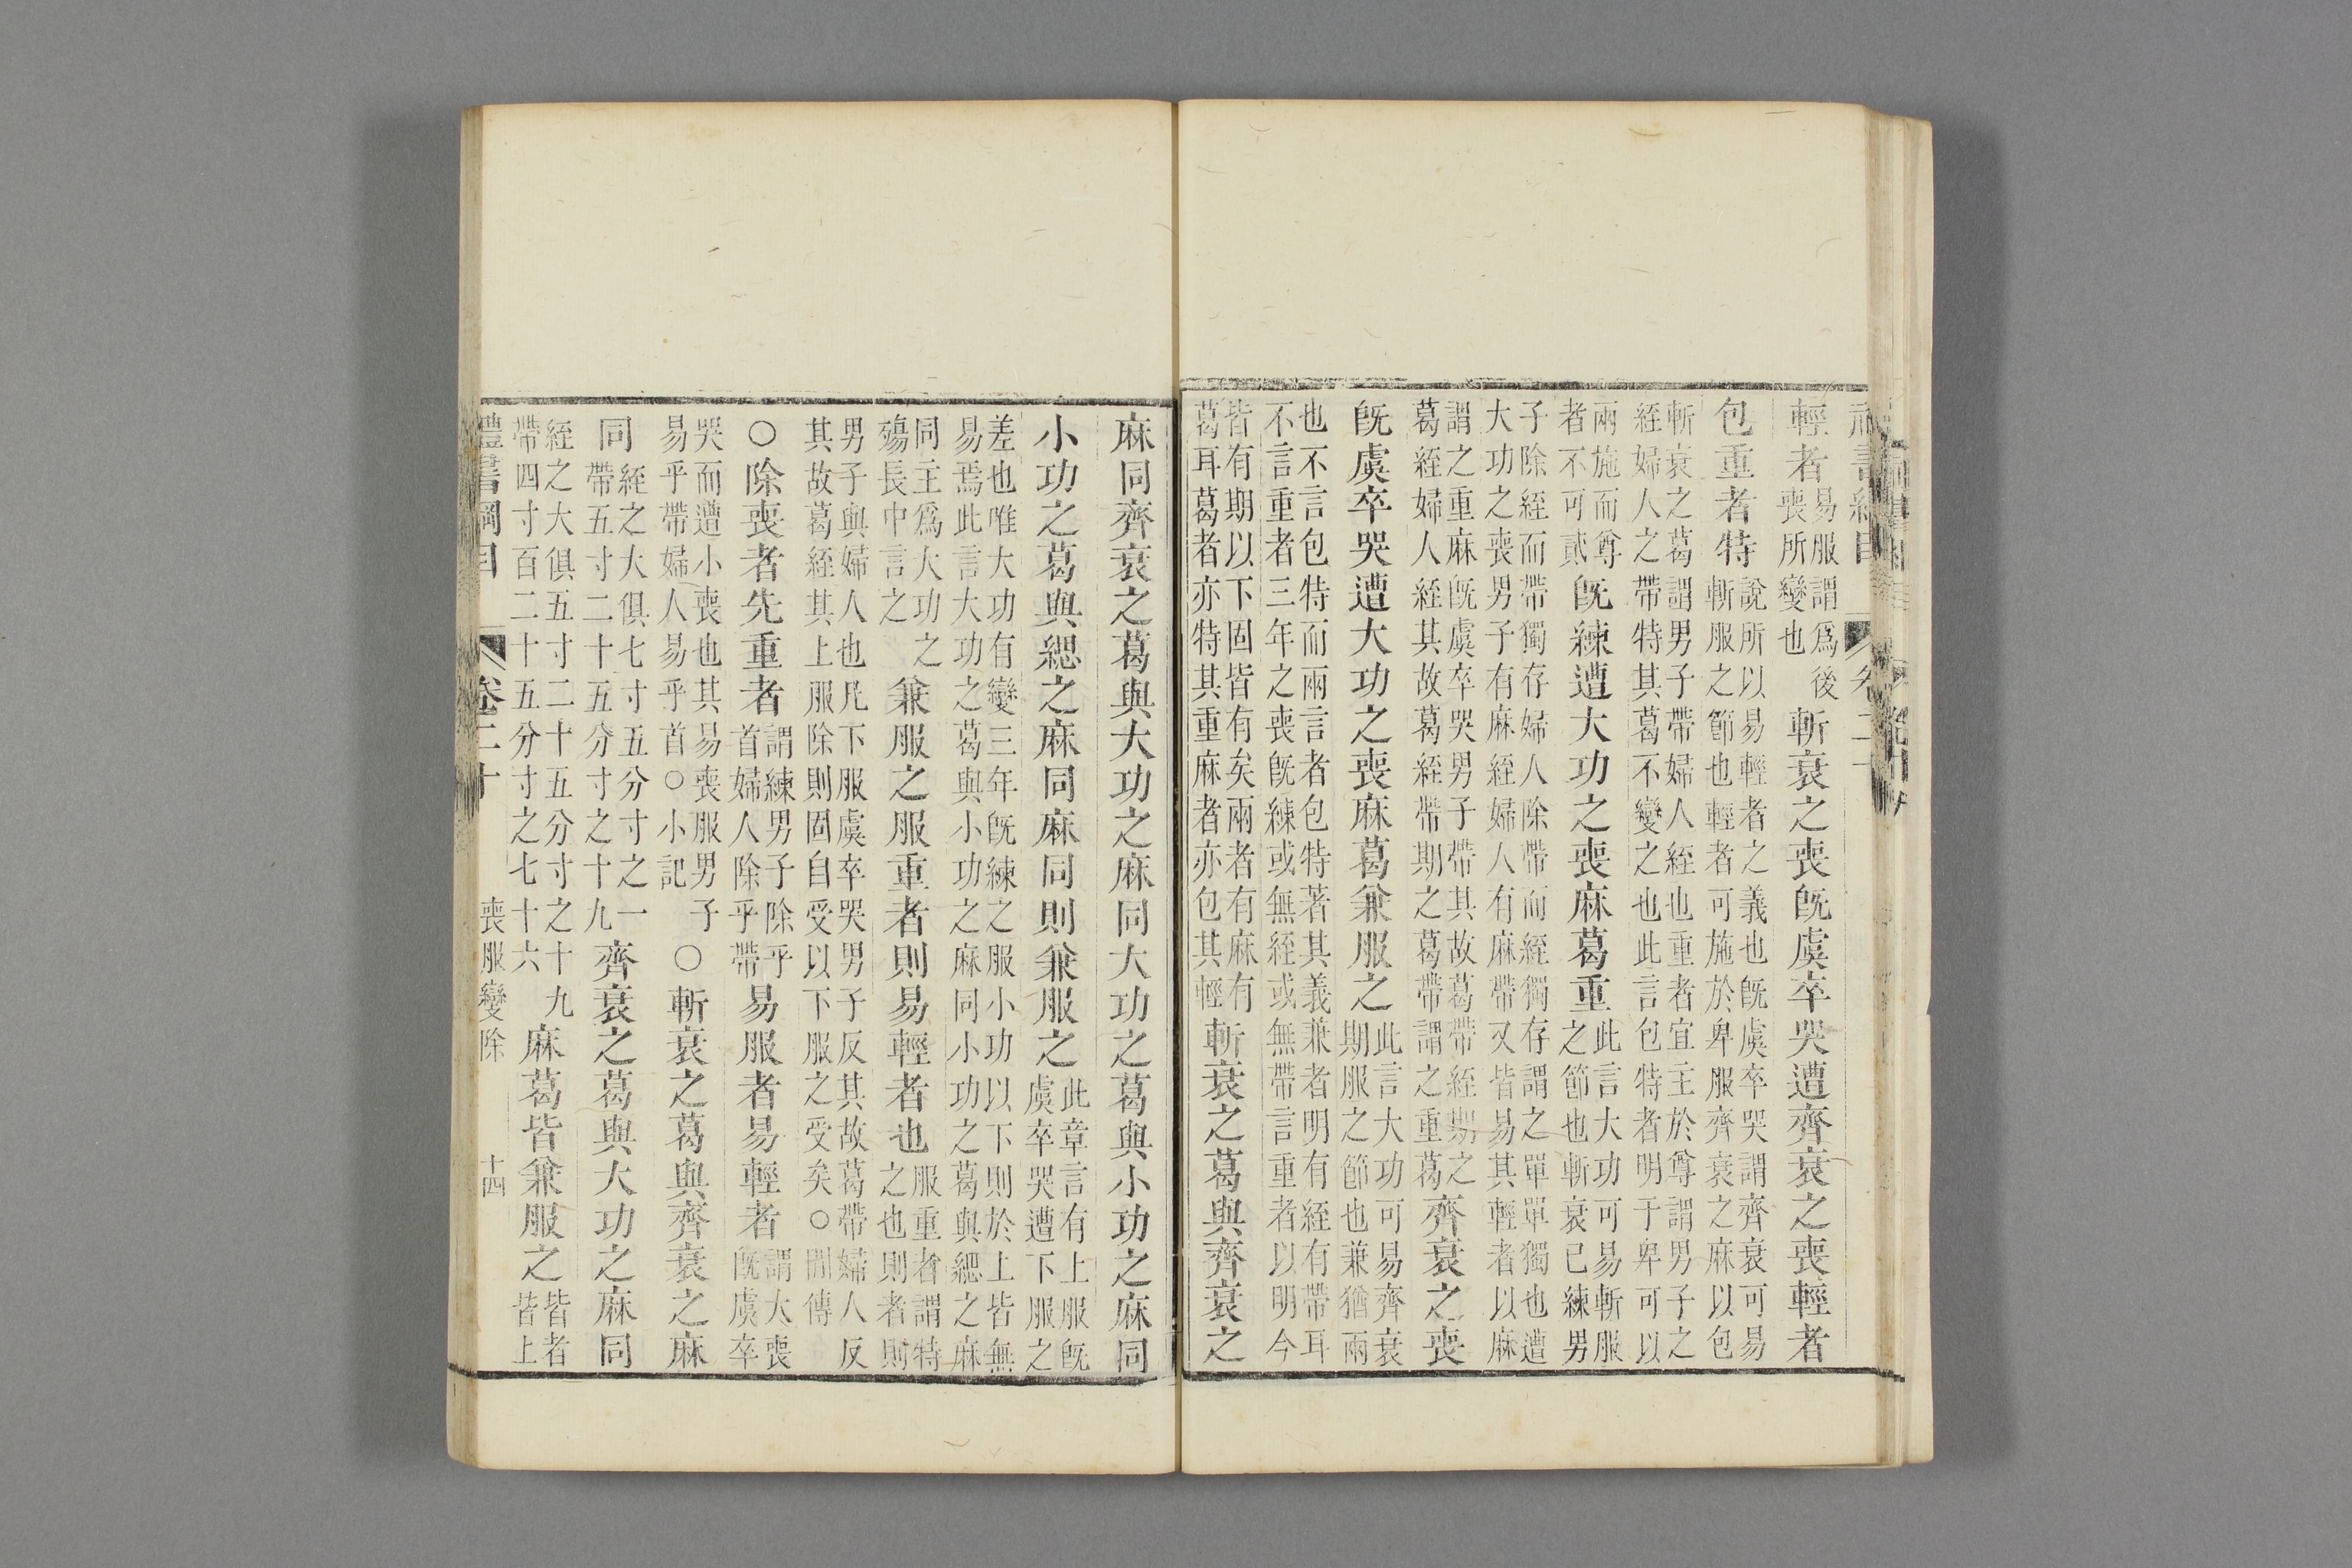 輕者易服謂爲後喪所變也斬衰之喪旣虞卒哭遭齊衰之喪輕者
包重者特說所以易輕者之義也旣虞卒哭謂齊衰可易斬服之節也輕者可施於卑服齊衰之麻以包
斬衰之葛謂男子帶婦人絰也重者宜主於尊謂男子之絰婦人之帶特其葛不變之也此言包特者明于卑可以
兩施而尊者不可貳旣練遭大功之喪麻葛重此言大功可易斬服之節也斬衰已練男
子除絰而帶獨存婦人除帶而絰獨存謂之單單獨也遭大功之喪男子有麻絰婦人有麻帶又皆易其輕者以麻
謂之重麻旣虞卒哭男子帶其故葛帶絰期之葛絰婦人絰其故葛絰帶期之葛帶謂之重葛齊衰之喪
旣虞卒哭遭大功之喪麻葛兼服之此言大功可易齊衰期服之節也兼猶兩
也不言包特而兩言者包特著其義兼者明有絰有帶耳不言重者三年之喪旣練或無絰或無帶言重者以明今
皆有期以下固皆有矣兩者有麻有葛耳葛者亦特其重麻者亦包其輕斬衰之葛與齊衰之
麻同齊衰之葛與大功之麻同大功之葛與小功之麻同
小功之葛與緦之麻同麻同則兼服之此章言有上服旣虞卒哭遭下服之
差也唯大功有變三年旣練之服小功以下則於上皆無易焉此言大功之葛與小功之麻同小功之葛與緦之麻
同主爲大功之殤長中言之兼服之服重者則易輕者也服重者謂特之也則者則
男子與婦人也凡下服虞卒哭男子反其故葛帶婦人反其故葛絰其上服除則固自受以下服之受矣○閒傳
○除喪者先重者謂練男子除乎首婦人除乎帶易服者易輕者謂大喪旣虞卒
哭而遭小喪也其易喪服男子易乎帶婦人易乎首○小記○斬衰之葛與齊衰之麻
同絰之大俱七寸五分寸之一帶五寸二十五分寸之十九齊衰之葛與大功之麻同
絰之大俱五寸二十五分寸之十九帶四寸百二十五分寸之七十六麻葛皆兼服之皆者皆上
禮書綱目 卷二十 喪服變除 十四